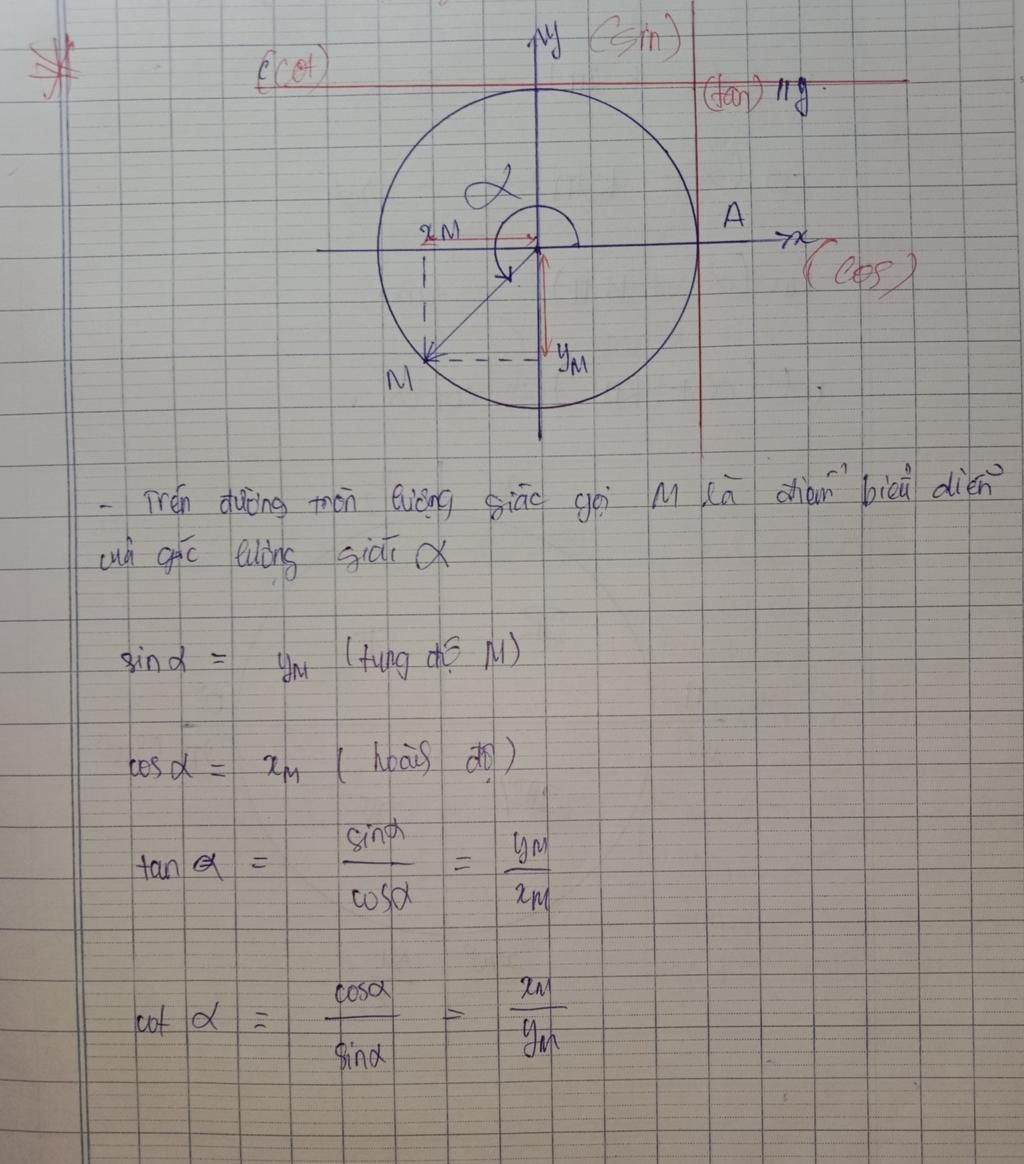 y (sin)
(cot)
(tan) // y
α
A
x_M
x
(cos)
y_M
M
- Trên đường tròn lượng giác gọi M là điểm biểu diễn
của góc lượng giác α
sinα = y_M (tung độ M)
cosα = x_M (hoành độ)
tan α = sinα / cosα = y_M / x_M
cot α = cosα / sinα = x_M / y_M